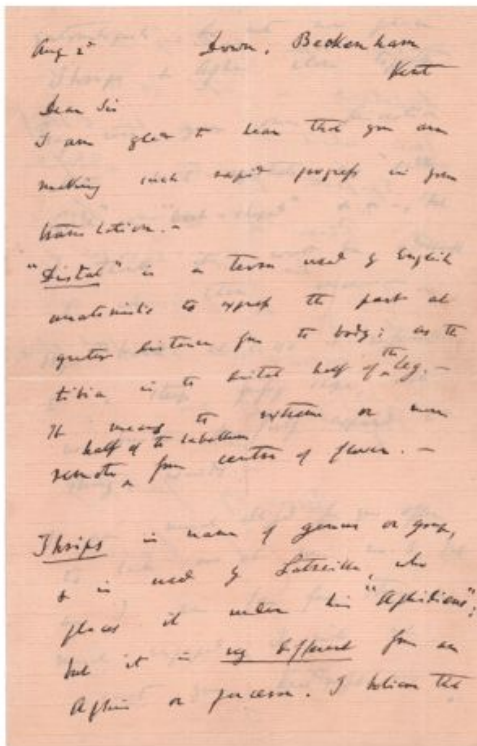 Aug 2d Down, Beckenham
Kent
Dear Sir
I am glad to hear that you are
making such rapid progress in your
translation. —
"Distal" is a term used by English
anatomists to express the part at
greater distance from the body; as the
tibia is the distal half of the leg. —
It means the extreme or more
half of the labellum
remote from centre of flower. —
Thrips is name of genus or group,
& is used by Latreille, who
places it under his "Aphidiens";
but it is very different from an
Aphis or puceron. I believe the